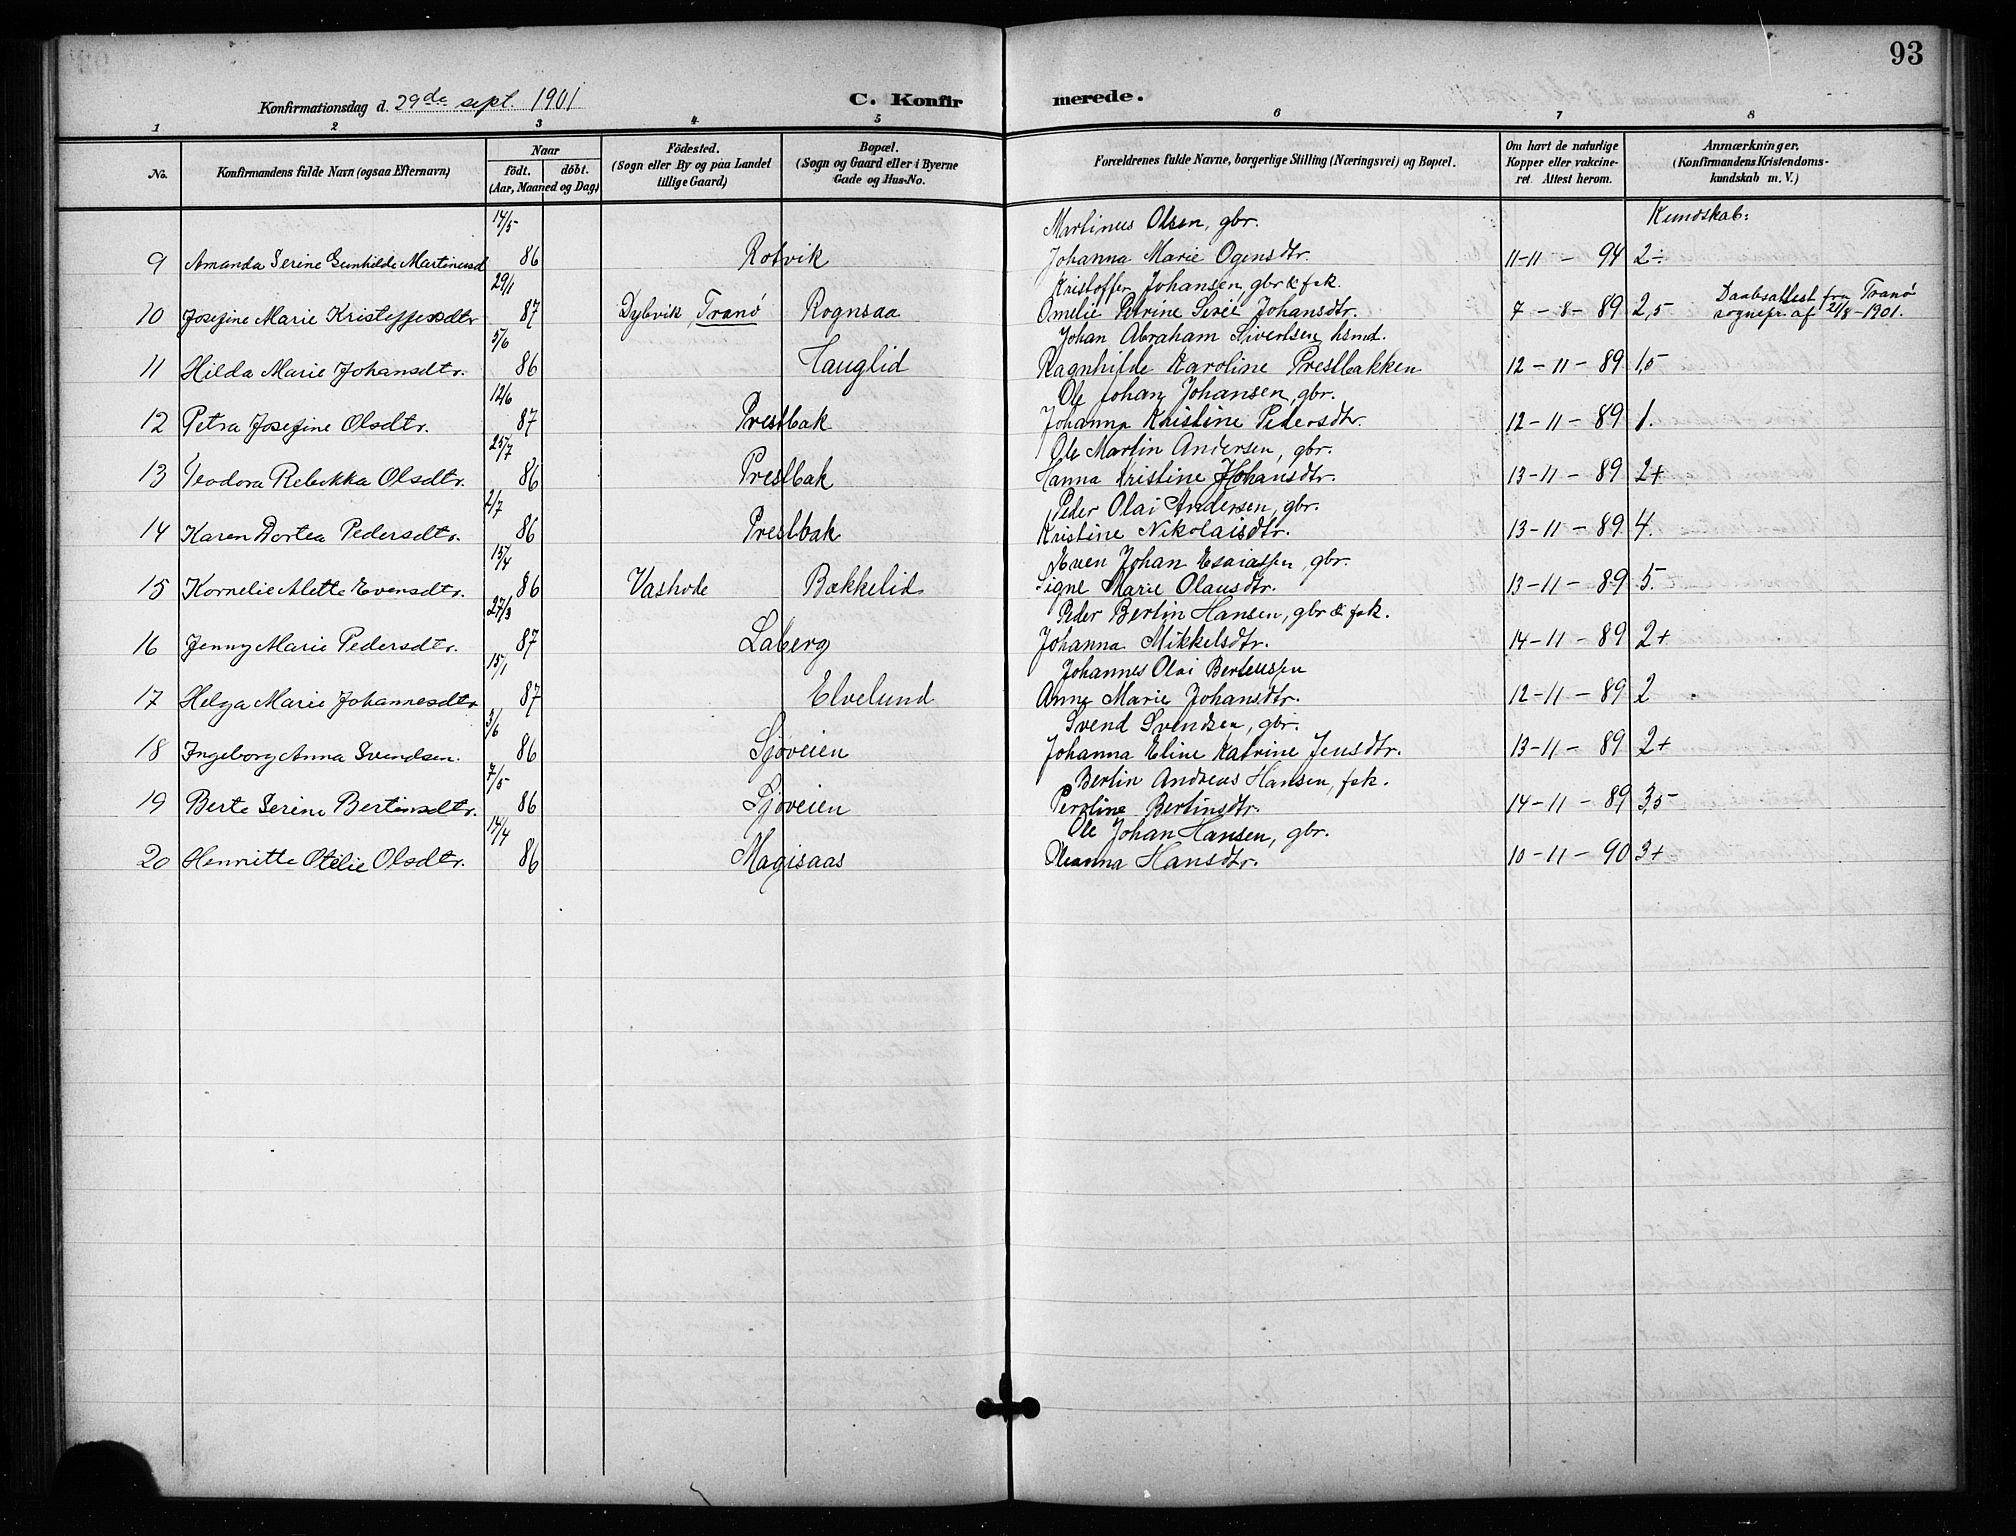 93
Konfirmationsdag d. 29de sept. 1901
C. Konfirmerede.
1 2 3 4 5 6 7 8
No.
Konfirmandens fulde Navn (ogsaa Efternavn)
Naar
födt. döbt.
(Aar, Maaned og Dag)
Födested.
(Sogn eller By og paa Landet
tillige Gaard)
Bopæl.
(Sogn og Gaard eller i Byerne
Gade og Hus-No.
Forældrenes fulde Navne, borgerlige Stilling (Næringsvei) og Bopæl.
Om havt de naturlige
Kopper eller vakcine-
ret. Attest herom.
Anmærkninger,
(Konfirmandens Kristendoms-
kundskab m. V.)
Kundskab:
14/5 Martinus Olsen, gbr.
9 Amanda Serine Gunhilde Martinusd 86 Rotvik Johanna Marie Ogensdtr. 11-11 - 94 2÷
29/1 Kristoffer Johansen, gbr & fsk.
10 Josefine Marie Kristoffersdtr 87 Dybvik, Tranø Rognsaa Omelie Petrine Sirei Johansdtr. 7 - 8 - 89 2,5 Daabsattest fra Tranø
sognepr. af 21/8 - 1901.
5/6 Johan Abraham Sivertsen hsmd.
11 Hilda Marie Johansdtr. 86 Hauglid Ragnhilde Karoline Prestbakken 12 - 11 - 89 1,5
12/6 Ole Johan Johansen, gbr.
12 Petra Josefine Olsdtr. 87 Prestbak Johanna Kristine Pedersdtr. 12 - 11 - 89 1.
25/7 Ole Martin Andersen, gbr.
13 Teodora Rebekka Olsdtr. 86 Prestbak Hanna Kristine Johansdtr. 13 - 11 - 89 2+
2/7 Peder Olai Andersen, gbr.
14 Karen Dortea Pedersdtr. 86 Prestbak Kristine Nikolaisdtr. 13 - 11 - 89 4.
15/4 Even Johan Esaiassen, gbr.
15 Kornelie Alette Evensdtr. 86 Vashode Bækkelid Signe Marie Olausdtr. 13 - 11 - 89 5.
27/3 Peder Bertin Hansen, gbr & fsk.
16 Jenny Marie Pedersdtr. 87 Laberg Johanna Mikkelsdtr. 14 - 11 - 89 2+
15/1 Johannes Olai Berteussen
17 Helga Marie Johannesdtr 87 Elvelund Anne Marie Johansdtr. 12 - 11 - 89 2
3/6 Svend Svendsen, gbr.
18 Ingeborg Anna Svendsen. 86 Sjøveien Johanna Eline Katrine Jensdtr. 13 - 11 - 89 2+
7/5 Bertin Andreas Hansen, fsk.
19 Berte Serine Bertinsdtr. 86 Sjøveien Peroline Bertinsdtr. 14 - 11 - 89 3,5
14/4 Ole Johan Hansen, gbr.
20 Henriette Otelie Olsdtr. 86 Magisaas Hansdtr. 10 - 11 - 90 3+